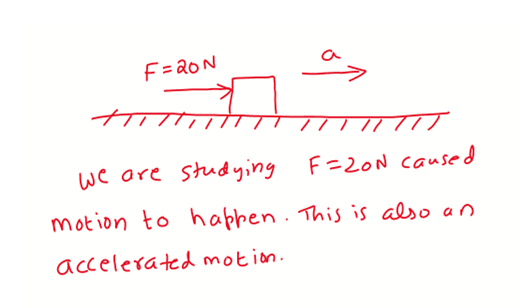 F=20N
a
We are studying F=20N caused
motion to happen. This is also an
accelerated motion.